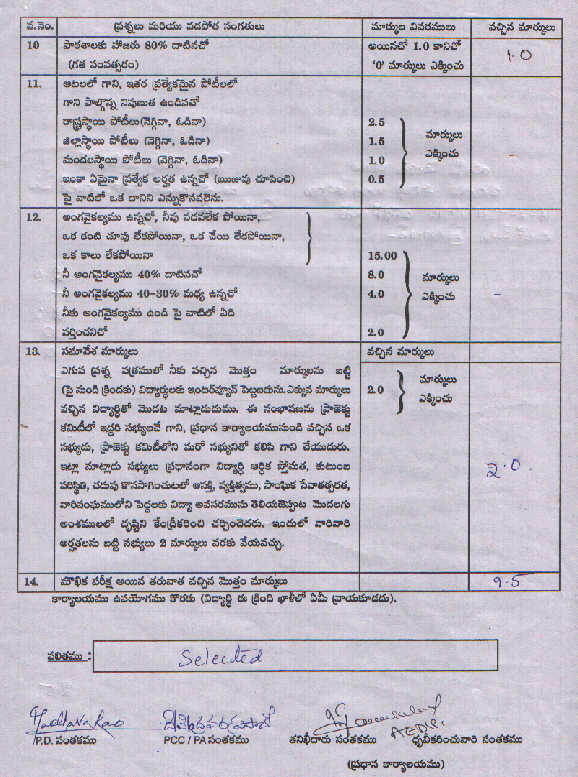 వ.నెం. ప్రశ్నలు మరియు పడపోర సంగతులు మార్కుల వివరములు వచ్చిన మార్కులు
10 పాఠశాలకు హాజరు 80% దాటినచో అయినచో 1.0 కానిచో 1.0
(గత సంవత్సరం) '0' మార్కులు ఎక్కించు
11. ఆటలలో గాని, ఇతర ప్రత్యేకమైన పోటీలలో
గాని పాల్గొన్న నిపుణత ఉండినచో
రాష్ట్రస్థాయి పోటీలు(నెగ్గినా, ఓడినా) 2.5 మార్కులు
జిల్లాస్థాయి పోటీలు (నెగ్గినా, ఓడినా) 1.5 ఎక్కించు
మండలస్థాయి పోటీలు (నెగ్గినా, ఓడినా) 1.0
ఇంకా ఏమైనా ప్రత్యేక అర్హత ఉన్నచో (ఋజువు చూపించి) 0.5
పై వాటిలో ఒక దానిని ఎన్నుకొనవలెను.
12. అంగవైకల్యము ఉన్నచో, నీవు నడవలేక పోయినా,
ఒక కంటి చూపు లేకపోయినా, ఒక చేయి లేకపోయినా,
ఒక కాలు లేకపోయినా 15.00
నీ అంగవైకల్యము 40% దాటినచో 8.0 మార్కులు
నీ అంగవైకల్యము 40-30% మధ్య ఉన్నచో 4.0 ఎక్కించు
నీకు అంగవైకల్యము ఉండి పై వాటిలో ఏది
వర్తించనిచో 2.0
13. సమావేశ మార్కులు వచ్చిన మార్కులు
ఎగువ ప్రశ్న పత్రములో నీకు వచ్చిన మొత్తం మార్కులను బట్టి
(పై నుండి క్రిందకు) విద్యార్థులకు ఇంటర్వ్యూన్ పెట్టబడును. ఎక్కువ మార్కులు 2.0 మార్కులు
వచ్చిన విద్యార్థితో మొదట మాట్లాడుదుము. ఈ సంభాషణను ప్రాజెక్టు ఎక్కించు
కమిటీలో ఇద్దరి సభ్యులచే గాని, ప్రధాన కార్యాలయమునుండి వచ్చిన ఒక
సభ్యుడు, ప్రాజెక్టు కమిటీలోని మరో సభ్యునితో కలిపి గాని చేయుదురు.
ఇట్లా మాట్లాడు సభ్యులు ప్రధానంగా విద్యార్థి ఆర్థిక స్తోమత, కుటుంబ 2.0.
పరిస్థితి, చదువు కొనసాగించుటలో ఆసక్తి, వ్యక్తిత్వము, సాంఘిక సేవాతత్పరత,
వారిసంఘములోని పెద్దలకు విద్యా అవసరమును తెలియజెప్పుట మొదలగు
అంశములలో దృష్టిని కేంద్రీకరించి చర్చించెదరు. ఇందులో వారివారి
అర్హతలను బట్టి సభ్యులు 2 మార్కులు వరకు వేయవచ్చు.
14. మౌఖిక పరీక్ష అయిన తరువాత వచ్చిన మొత్తం మార్కులు 9.5
కార్యాలయము ఉపయోగము కొరకు (విద్యార్థి ఈ క్రింది ఖాళీలో ఏమీ వ్రాయకూడదు).
ఫలితము : Selected
P.D. సంతకము PCC / PA సంతకము తనిఖీదారు సంతకము ధృవీకరించువారి సంతకము
(ప్రధాన కార్యాలయము)